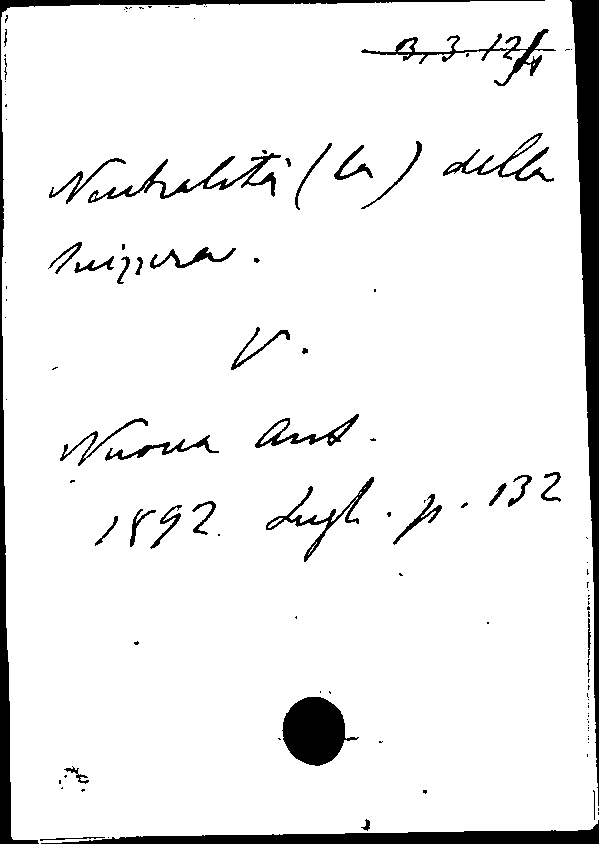 Neutralità (la) della
Svizzera.
V.
Nuova Ant.
1892 Lugl. p. 132